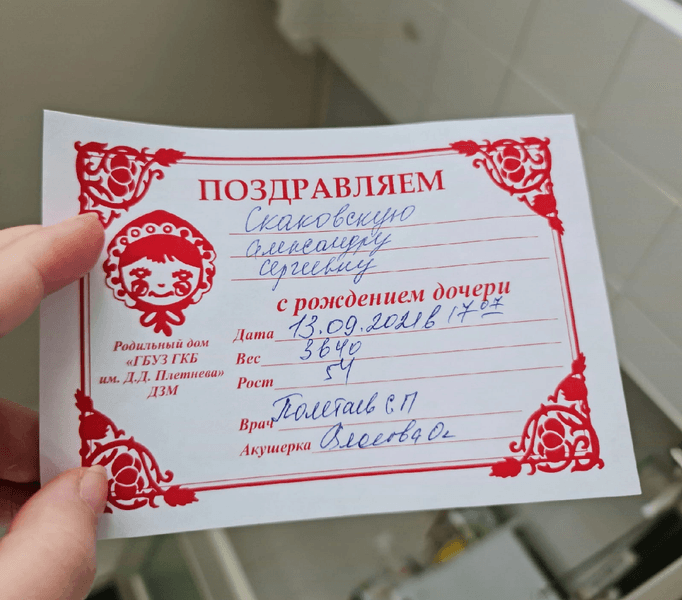 ПОЗДРАВЛЯЕМ
Скаковскую
Александру
Сергеевну
с рождением дочери
Дата 13.09.2021 в 17 07
Вес 3640
Рост 54
Врач Полетаев С П
Акушерка Власова О
Родильный дом
«ГБУЗ ГКБ
им. Д.Д. Плетнева»
ДЗМ